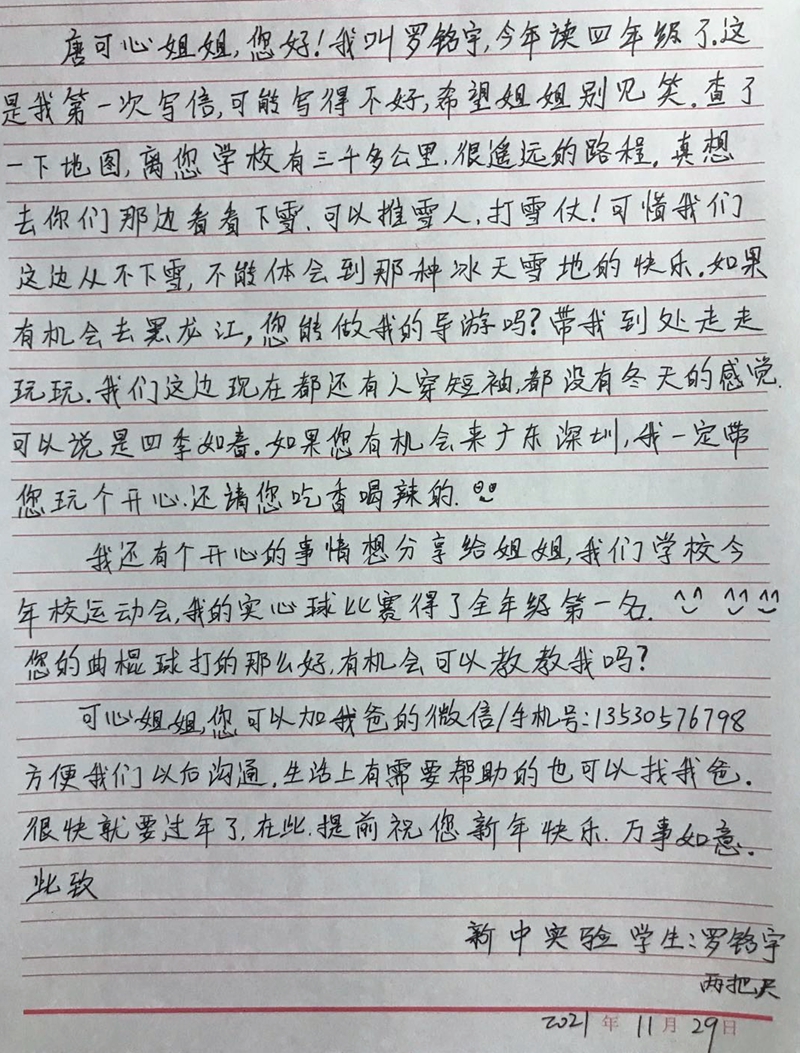 唐可心姐姐,您好!我叫罗铭宇,今年读四年级了.这
是我第一次写信,可能写得不好,希望姐姐别见笑.查了
一下地图,离您学校有三千多公里.很遥远的路程.真想
去你们那边看看下雪.可以推雪人,打雪仗!可惜我们
这边从不下雪,不能体会到那种冰天雪地的快乐.如果
有机会去黑龙江,您能做我的导游吗?带我到处走走
玩玩.我们这边现在都还有人穿短袖,都没有冬天的感觉.
可以说是四季如春.如果您有机会来广东深圳,我一定带
您玩个开心.还请您吃香喝辣的.
我还有个开心的事情想分享给姐姐,我们学校今
年校运动会,我的实心球比赛得了全年级第一名. ^^ ^^ ^^
您的曲棍球打的那么好,有机会可以教教我吗?
可心姐姐,您可以加我爸的微信/手机号:13530576798
方便我们以后沟通.生活上有需要帮助的也可以找我爸.
很快就要过年了,在此.提前祝您新年快乐.万事如意.
此致
新中实验 学生:罗铭宇
两把尺
2021年11月29日